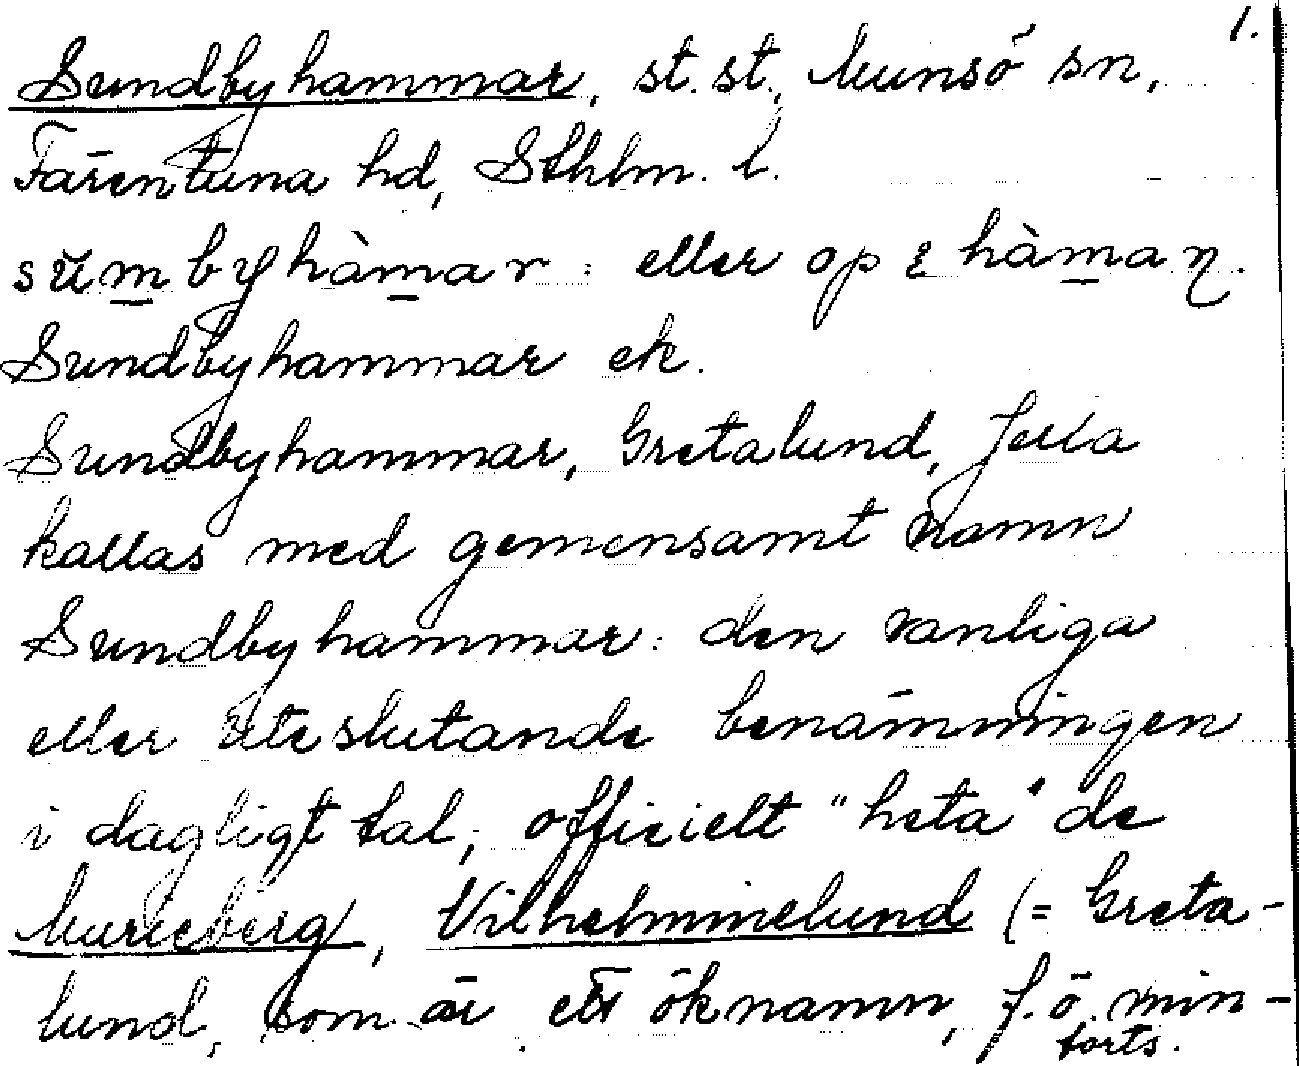 1.
Sundbyhammar, st. st., Munsö sn,
Färentuna hd, Sthlm. l.
sŭmbyhàmar : eller op i hàmaɳ.
Sundbyhammar ek.
Sundbyhammar, Gretalund, Jerla
kallas med gemensamt namn
Sundbyhammar: den vanliga
eller uteslutande benämningen
i dagligt tal; officielt "heta" de
Marieberg, Vilhelminelund (= Greta-
lund, som är ett öknamn, f. ö. min-
forts.